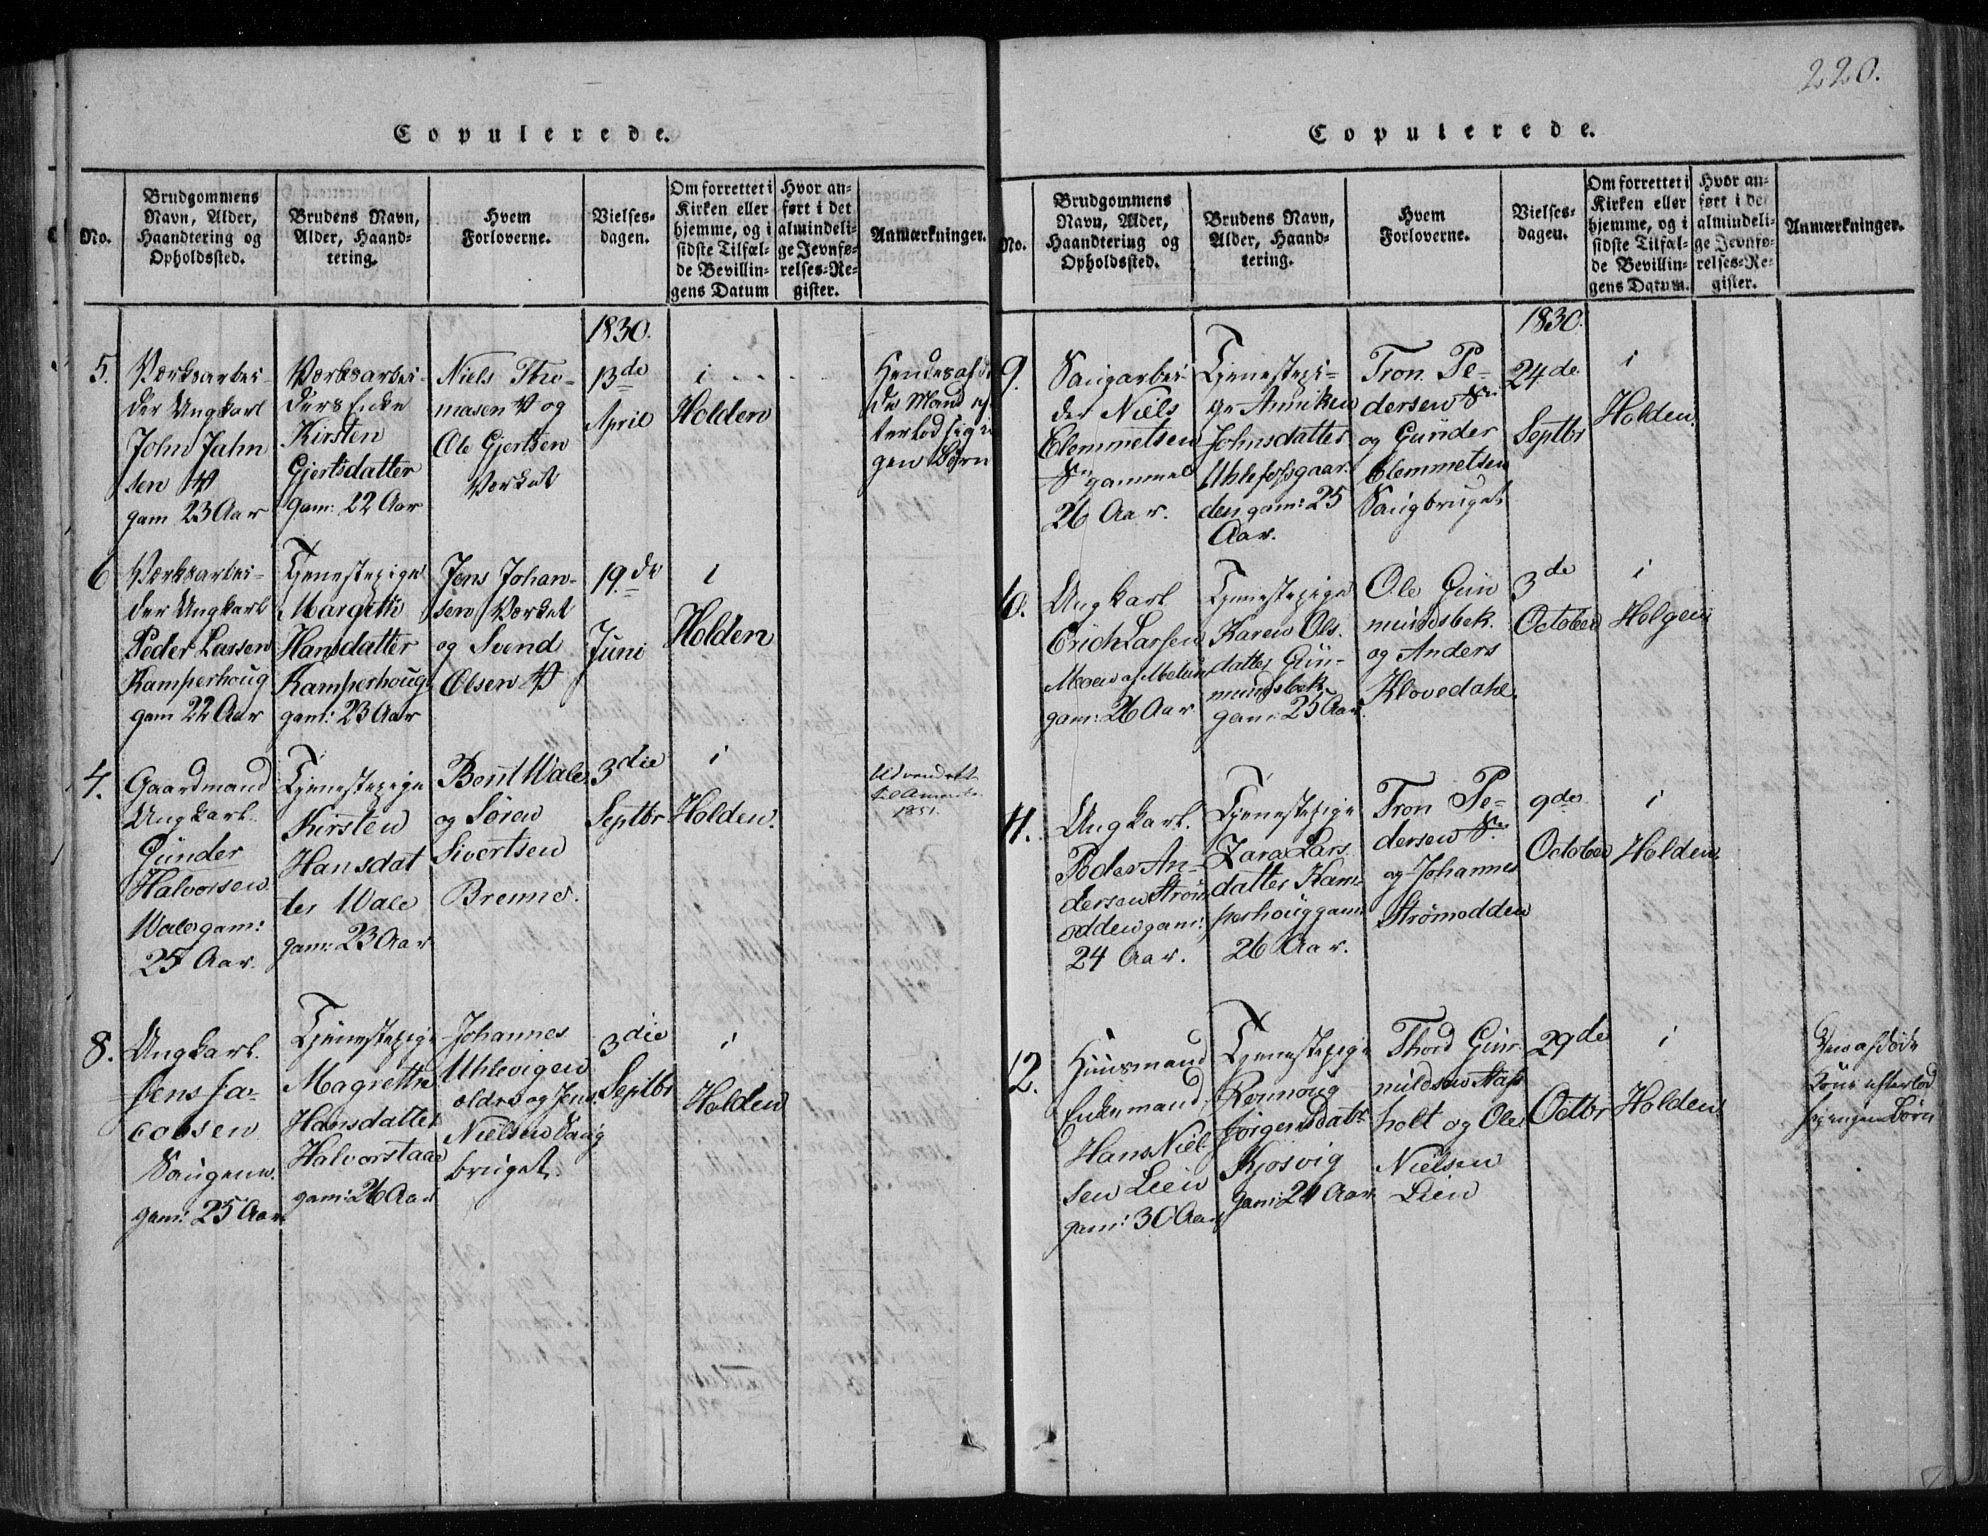 220.
Copulerede.
No.
Brudgommens
Navn, Alder,
Haandtering og
Opholdssted.
Brudens Navn,
Alder, Haand-
tering.
Hvem
Forloverne.
Vielses-
dagen.
Om forrettet i
Kirken eller
hjemme, og i
sidste Tilfæl-
de Bevillin-
gens Datum
Hvor an-
ført i det
almindeli-
ge Jevnfø-
relses-Re-
gister.
Anmærkninger.
1830.
5.
Værksarbei-
der Ungkarl
John Jahn
sen
gam 23 Aar
Værksarbei-
ders Enke
Kirsten
Gjertsdatter
gam: 22 Aar
Niels Tho-
masen og
Ole Gjertsen
Værket
13de
April
i
Holden
Hendes afdø
de Mand ef
terlod sig in
gen Børn
6
Værksarbei-
der Ungkarl
Peder Lassen
Kamperhoug
gam 22 Aar
Tjenestepige
Margith
Hansdatter
Kamperhoug
gam: 23 Aar
Jens Johan-
sen Værket
og Svend
Olsen
19de
Juni
i
Holden
Gaardmand
Ungkarl
Gunder
Halvorsen
Wale gam:
25 Aar.
Tjenestepige
Kirsten
Hansdat
ter Wale
gam: 23 Aar
Bent Wale
og Søren
Sivertsen
3die
Septbr
i
Holden.
Udvandret
til
1851.
8.
Ungkarl.
Jens Ja-
cobsen
Saugene.
gam: 25 Aar
Tjenestepige
Magrethe
Hansdatter
Halvorstaae
gam: 26 Aar
Johannes
Uhlevigen
ældre og Jens
Nielsen Saug
bruget.
3die
Septbr
i
Holden
Copulerede.
No.
Brudgommens
Navn, Alder,
Haandtering og
Opholdssted.
Brudens Navn,
Alder, Haand-
tering.
Hvem
Forloverne.
Vielses-
dagen.
Om forrettet i
Kirken eller
hjemme, og i
sidste Tilfæl-
de Bevillin-
gens Datum.
Hvor an-
ført i det
almindeli-
ge Jevnfø-
relses-Re-
gister.
Anmærkninger.
1830.
9.
Saugarbei-
der Niels
Clemmetsen
gammel
26 Aar.
Tjenestepi-
ge Anniken
Johnsdatter
Uhlefossgaar.
den gam: 25
Aar.
Tron Pe-
dersen
og Gunder
Clemmetsen
Saugbruget
24de
Septbr
i
Holden.
10.
Ungkarl
Erich Larsen
gam: 26 Aar
Tjenestepige
Karen Ols.
datter Gun-
mundsbek
gam: 25 Aar.
Ole Gun
mundsbek.
og Anders
Klovedahl.
3de
October
i
Helgen
11.
Ungkarl.
Peder An-
dersen Strøm
odden gam:
24 Aar.
Tjenestepige
Zara Lars
datter Kam-
perhoug gam:
26 Aar.
Tron Pe-
dersen
og Johannes
Strømodden
9de
October
i
Holden
12.
Huusmand
Enkemand
Hans Niel-
sen Lien
gam: 30 Aar
Tjenestepige
Rønnoug
Jørgensdatt
Kjosvig
gam: 24 Aar
Thord Gun-
mildsen
holt og Ole
Nielsen
Lien
29de
Octbr
i
Holden
Hans afdøde
Kone efterlod
sig ingen Børn